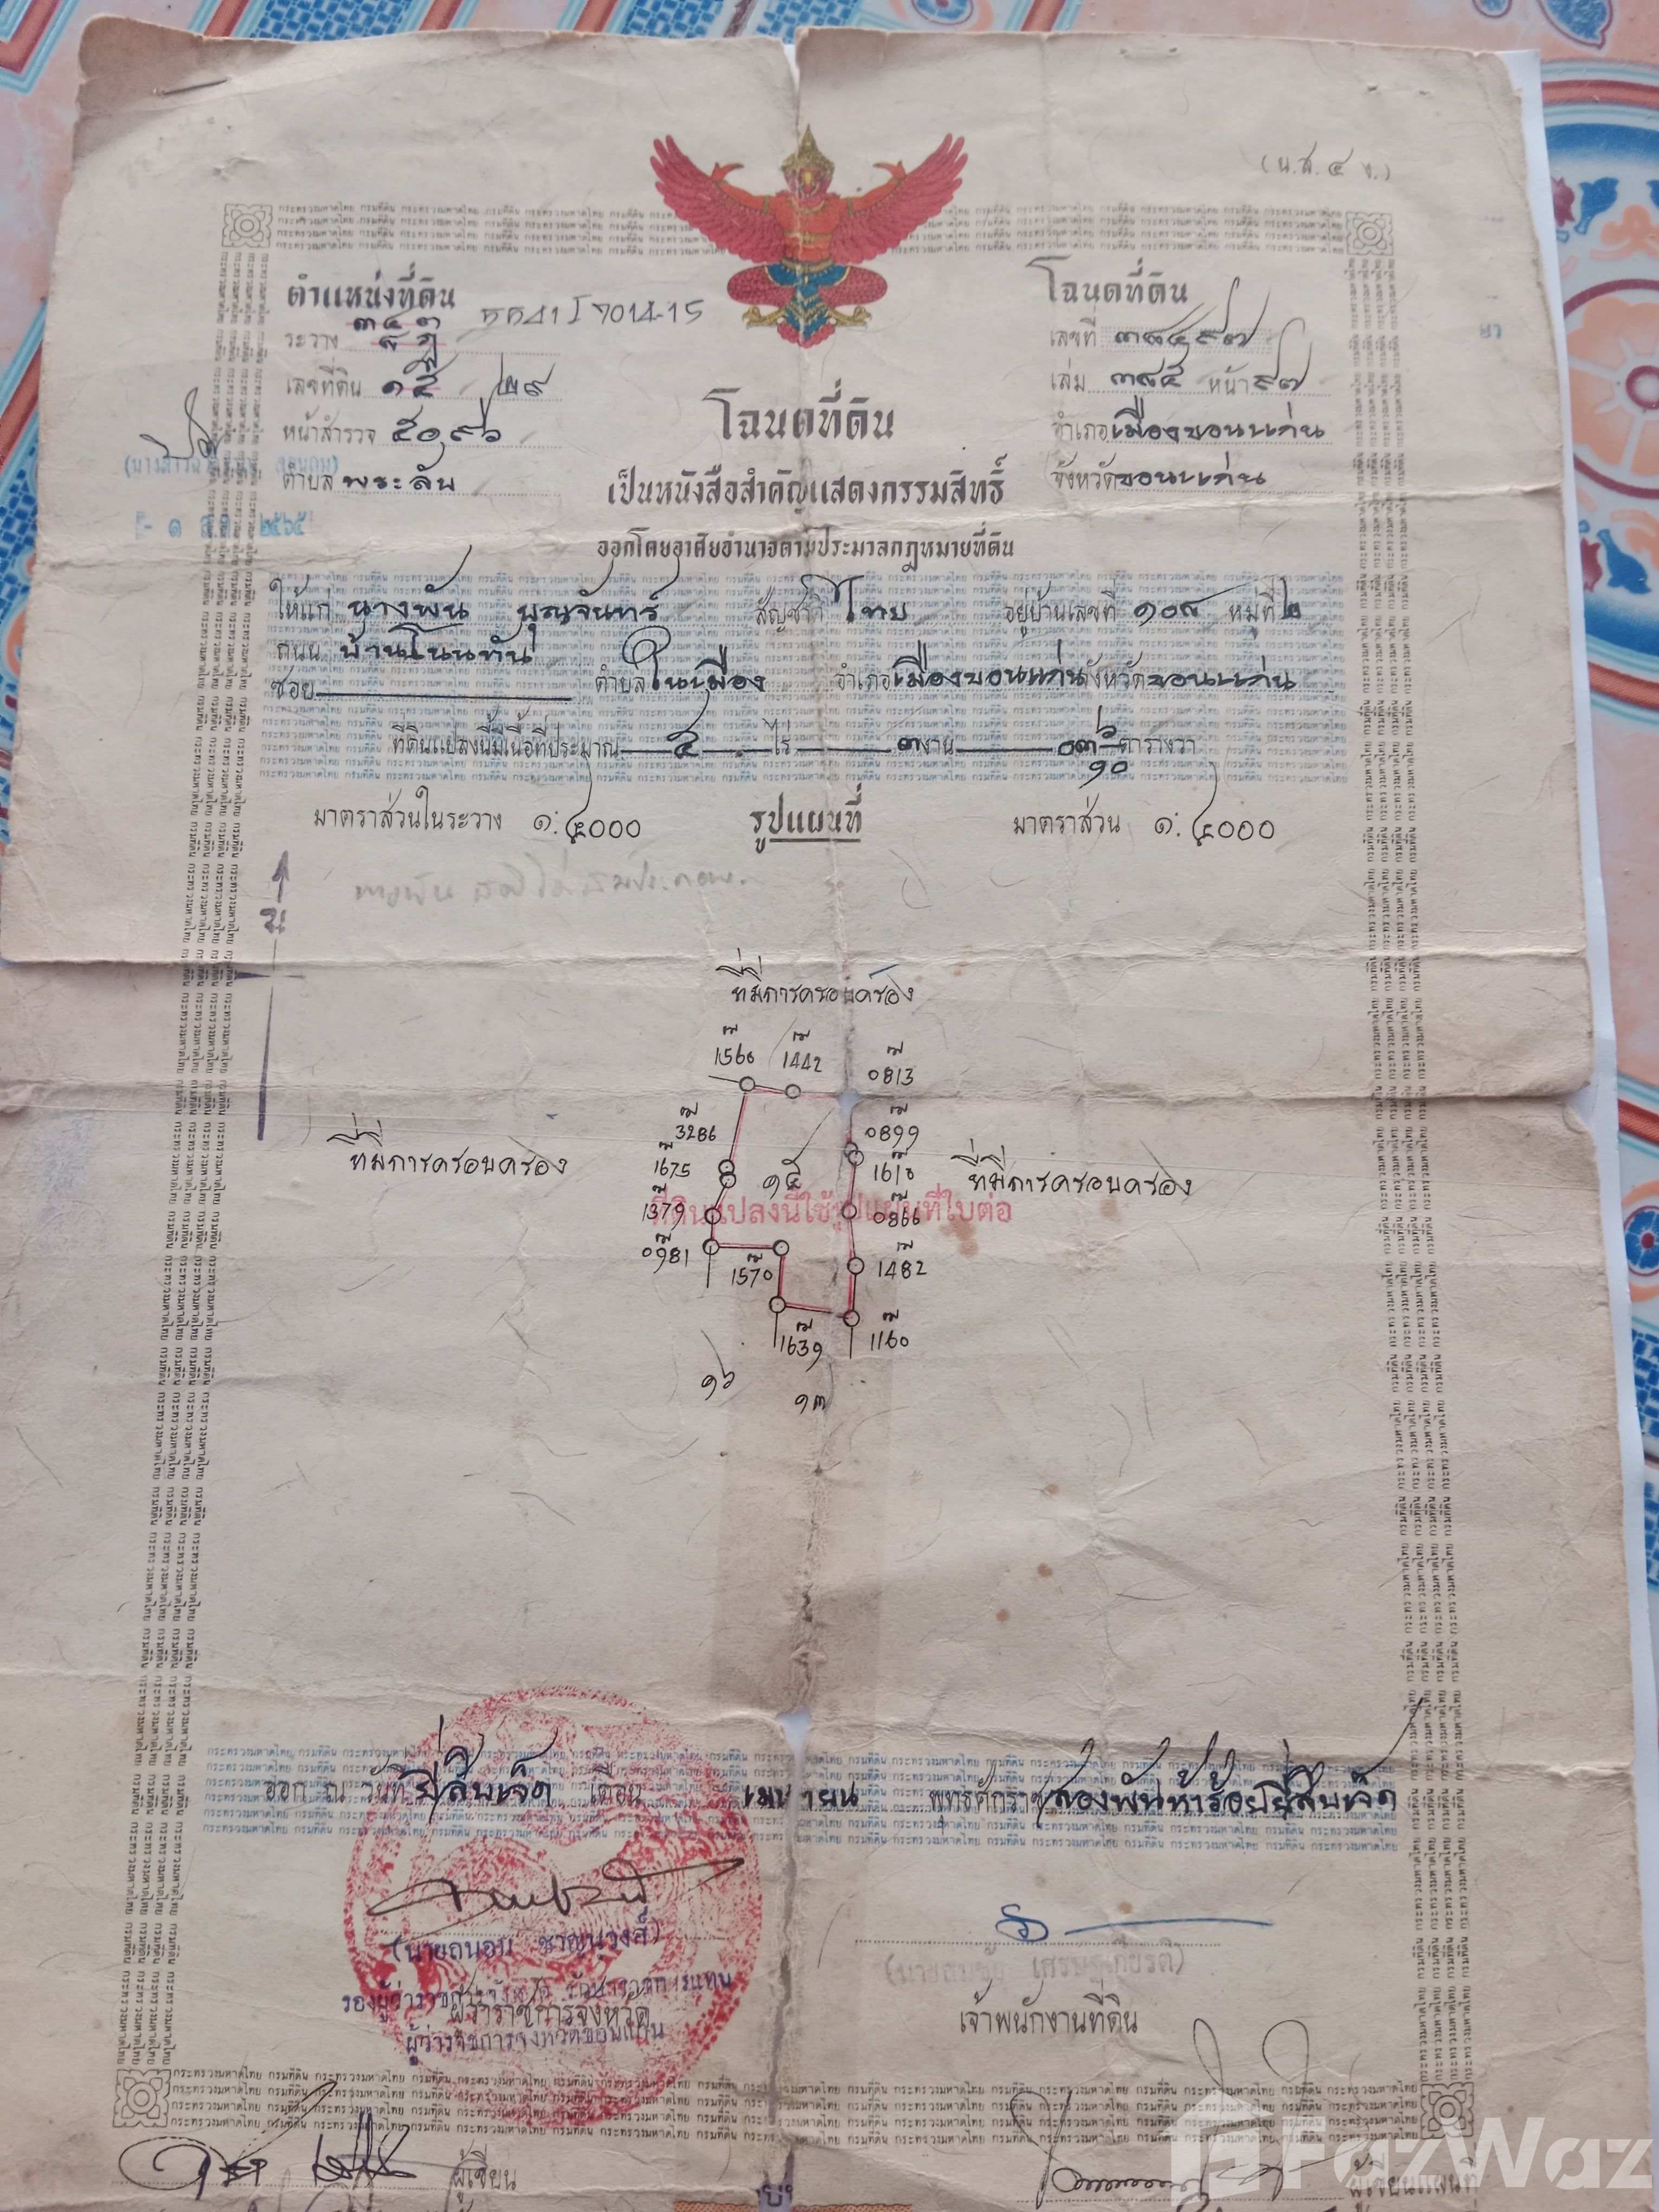 (น.ส. ๔ จ.)
ตำแหน่งที่ดิน
ระวาง ๓๔๓
7014-15
เลขที่ดิน ๑๕ ๒๙
หน้าสำรวจ ๕๐๙๖
ตำบล พระลับ
๒๕๖๕
โฉนดที่ดิน
เลขที่ ๓๘๔๙๗
เล่ม ๓๘๕ หน้า ๙๗
อำเภอ เมืองขอนแก่น
จังหวัด ขอนแก่น
โฉนดที่ดิน
เป็นหนังสือสำคัญแสดงกรรมสิทธิ์
ออกโดยอาศัยอำนาจตามประมวลกฎหมายที่ดิน
ให้แก่ นางพัน บุญจันทร์ สัญชาติ ไทย อยู่บ้านเลขที่ ๑๐๙ หมู่ที่ ๒
ถนน บ้านโนนทัน
ซอย ตำบล ในเมือง อำเภอ เมืองขอนแก่น จังหวัด ขอนแก่น
ที่ดินแปลงนี้มีเนื้อที่ประมาณ ๕ ไร่ ๓ งาน ตารางวา
๑๐
มาตราส่วนในระวาง ๑:๔๐๐๐ รูปแผนที่ มาตราส่วน ๑:๔๐๐๐
น
ที่มีการครอบครอง
1560 1442 0813
3286 0899
ที่มีการครอบครอง 1675 ๑๕ 1610 ที่มีการครอบครอง
1379 ที่ดินแปลงนี้ใช้รูปแผนที่ใบต่อ 0866
0981 1570 1482
1639 1160
๑๖ ๑๓
ออก ณ วันที่ ยี่สิบเจ็ด เดือน เมษายน พุทธศักราช สองพันห้าร้อยยี่สิบเจ็ด
(นายถนอม ชาญนุวงศ์)
รองผู้ว่าราชการจังหวัด รักษาราชการแทน
ผู้ว่าราชการจังหวัด
ผู้ว่าราชการจังหวัดขอนแก่น
(นายสมชัย เศรษฐเกียรติ)
เจ้าพนักงานที่ดิน
ผู้เขียน
ผู้เขียนแผนที่
FazWaz